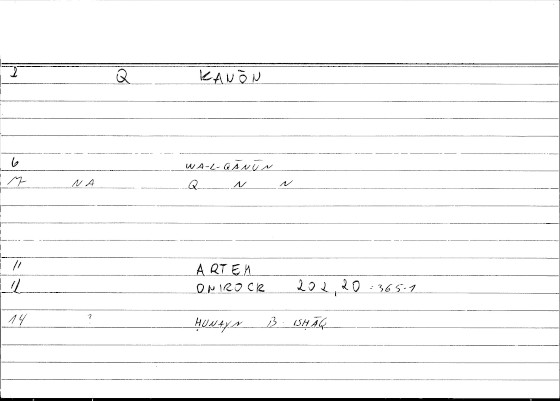 2 Q KANŌN
6 WA-L-QĀNŪN
M NA Q N N
11 ARTEM
12 ONIROCR 202,20 = 365-1
14 ? ḤUNAYN B ISḤĀQ